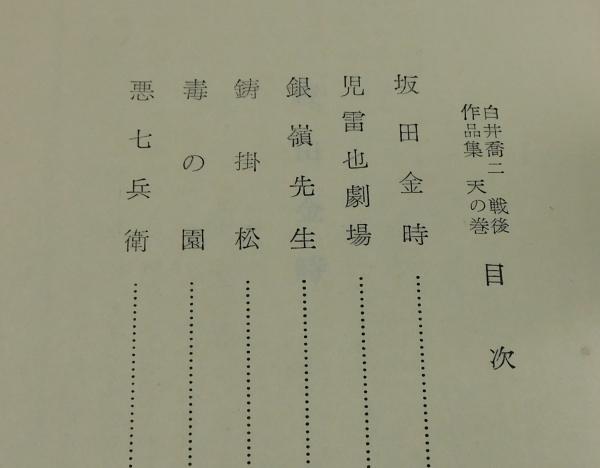 白井喬二 戦後
作品集 天の巻
目次
坂田金時
児雷也劇場
銀嶺先生
鋳掛松
毒の園
悪七兵衛